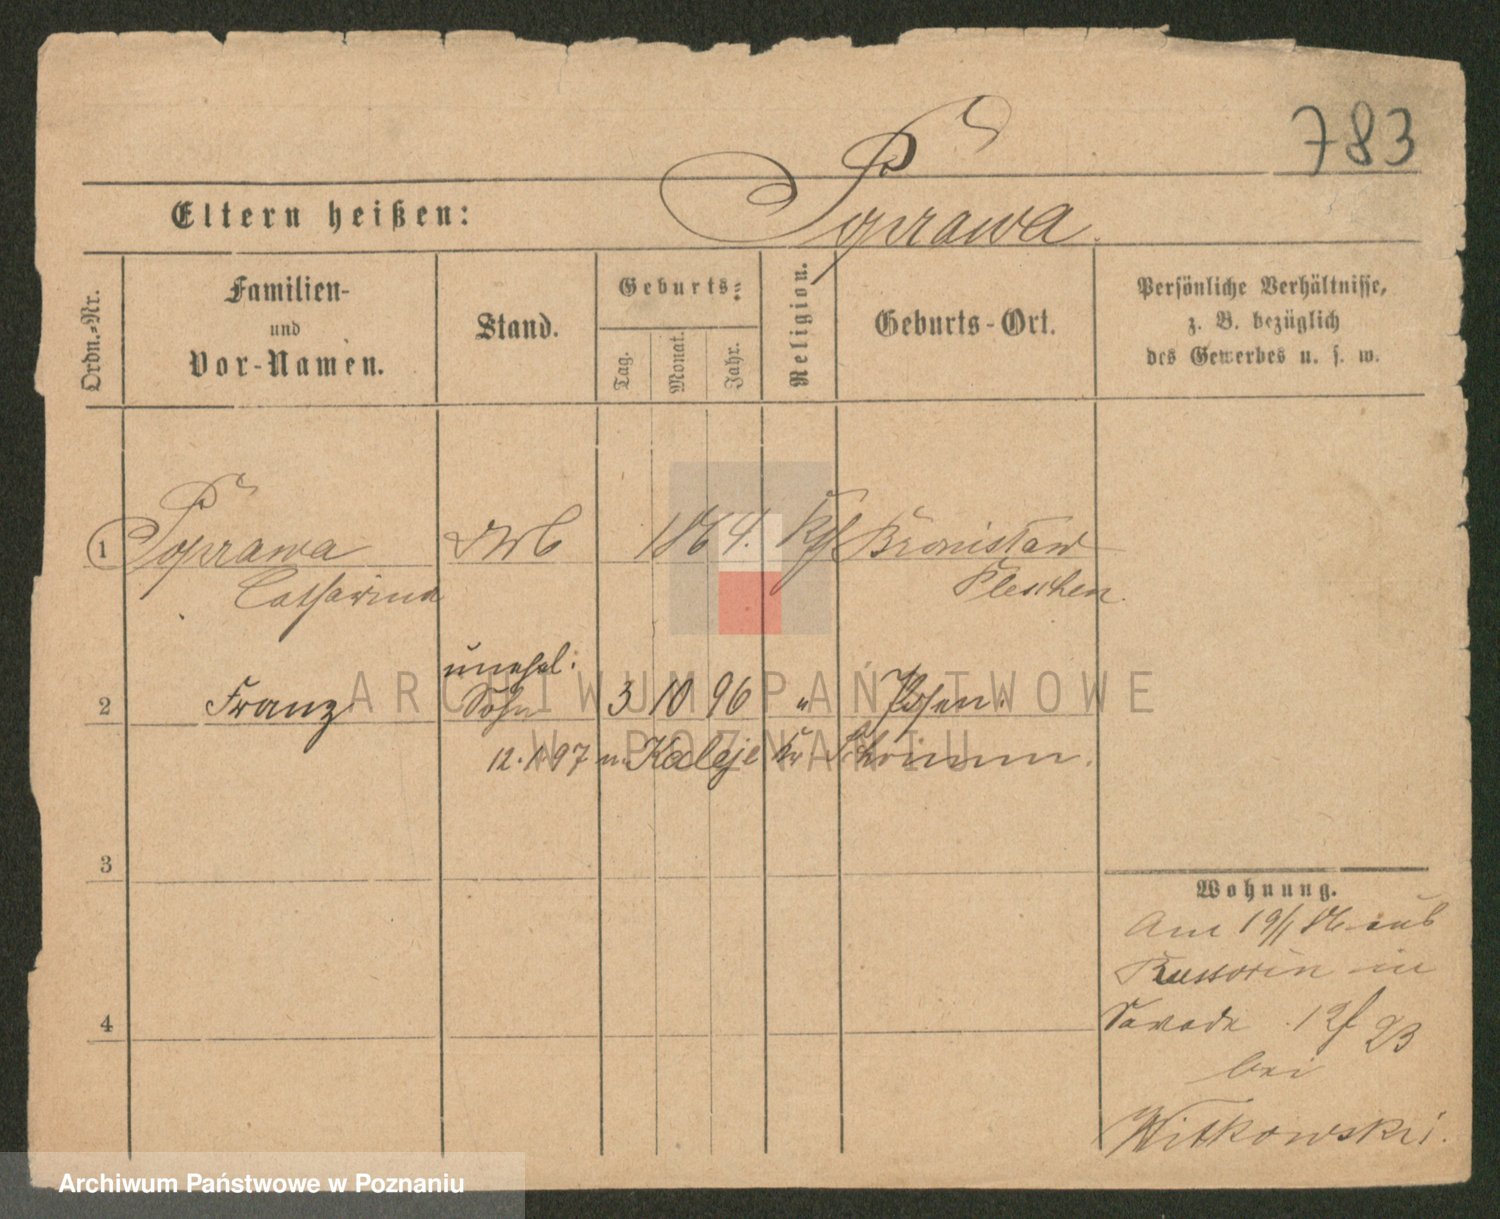 783
Poprawa.
Eltern heißen:
Ordn.-Nr.
Familien-
und
Vor-Namen.
Stand.
Geburts-
Tag.
Monat.
Jahr.
Religion.
Geburts-Ort.
Persönliche Verhältnisse,
z. B. bezüglich
des Gewerbes u. s. w.
1 Poprawa 1864. Kf Bronislaw
Catharina Pleschen.
unehel:
2 Franz Sohn 3 10 96 " Posen.
12.1.97 n. Kaleje Kr Schrimm.
3
4
Wohnung.
Am 19/1 aus
in
bei
Witkowski.
ARCHIWUM PAŃSTWOWE
W POZNANIU
Archiwum Państwowe w Poznaniu